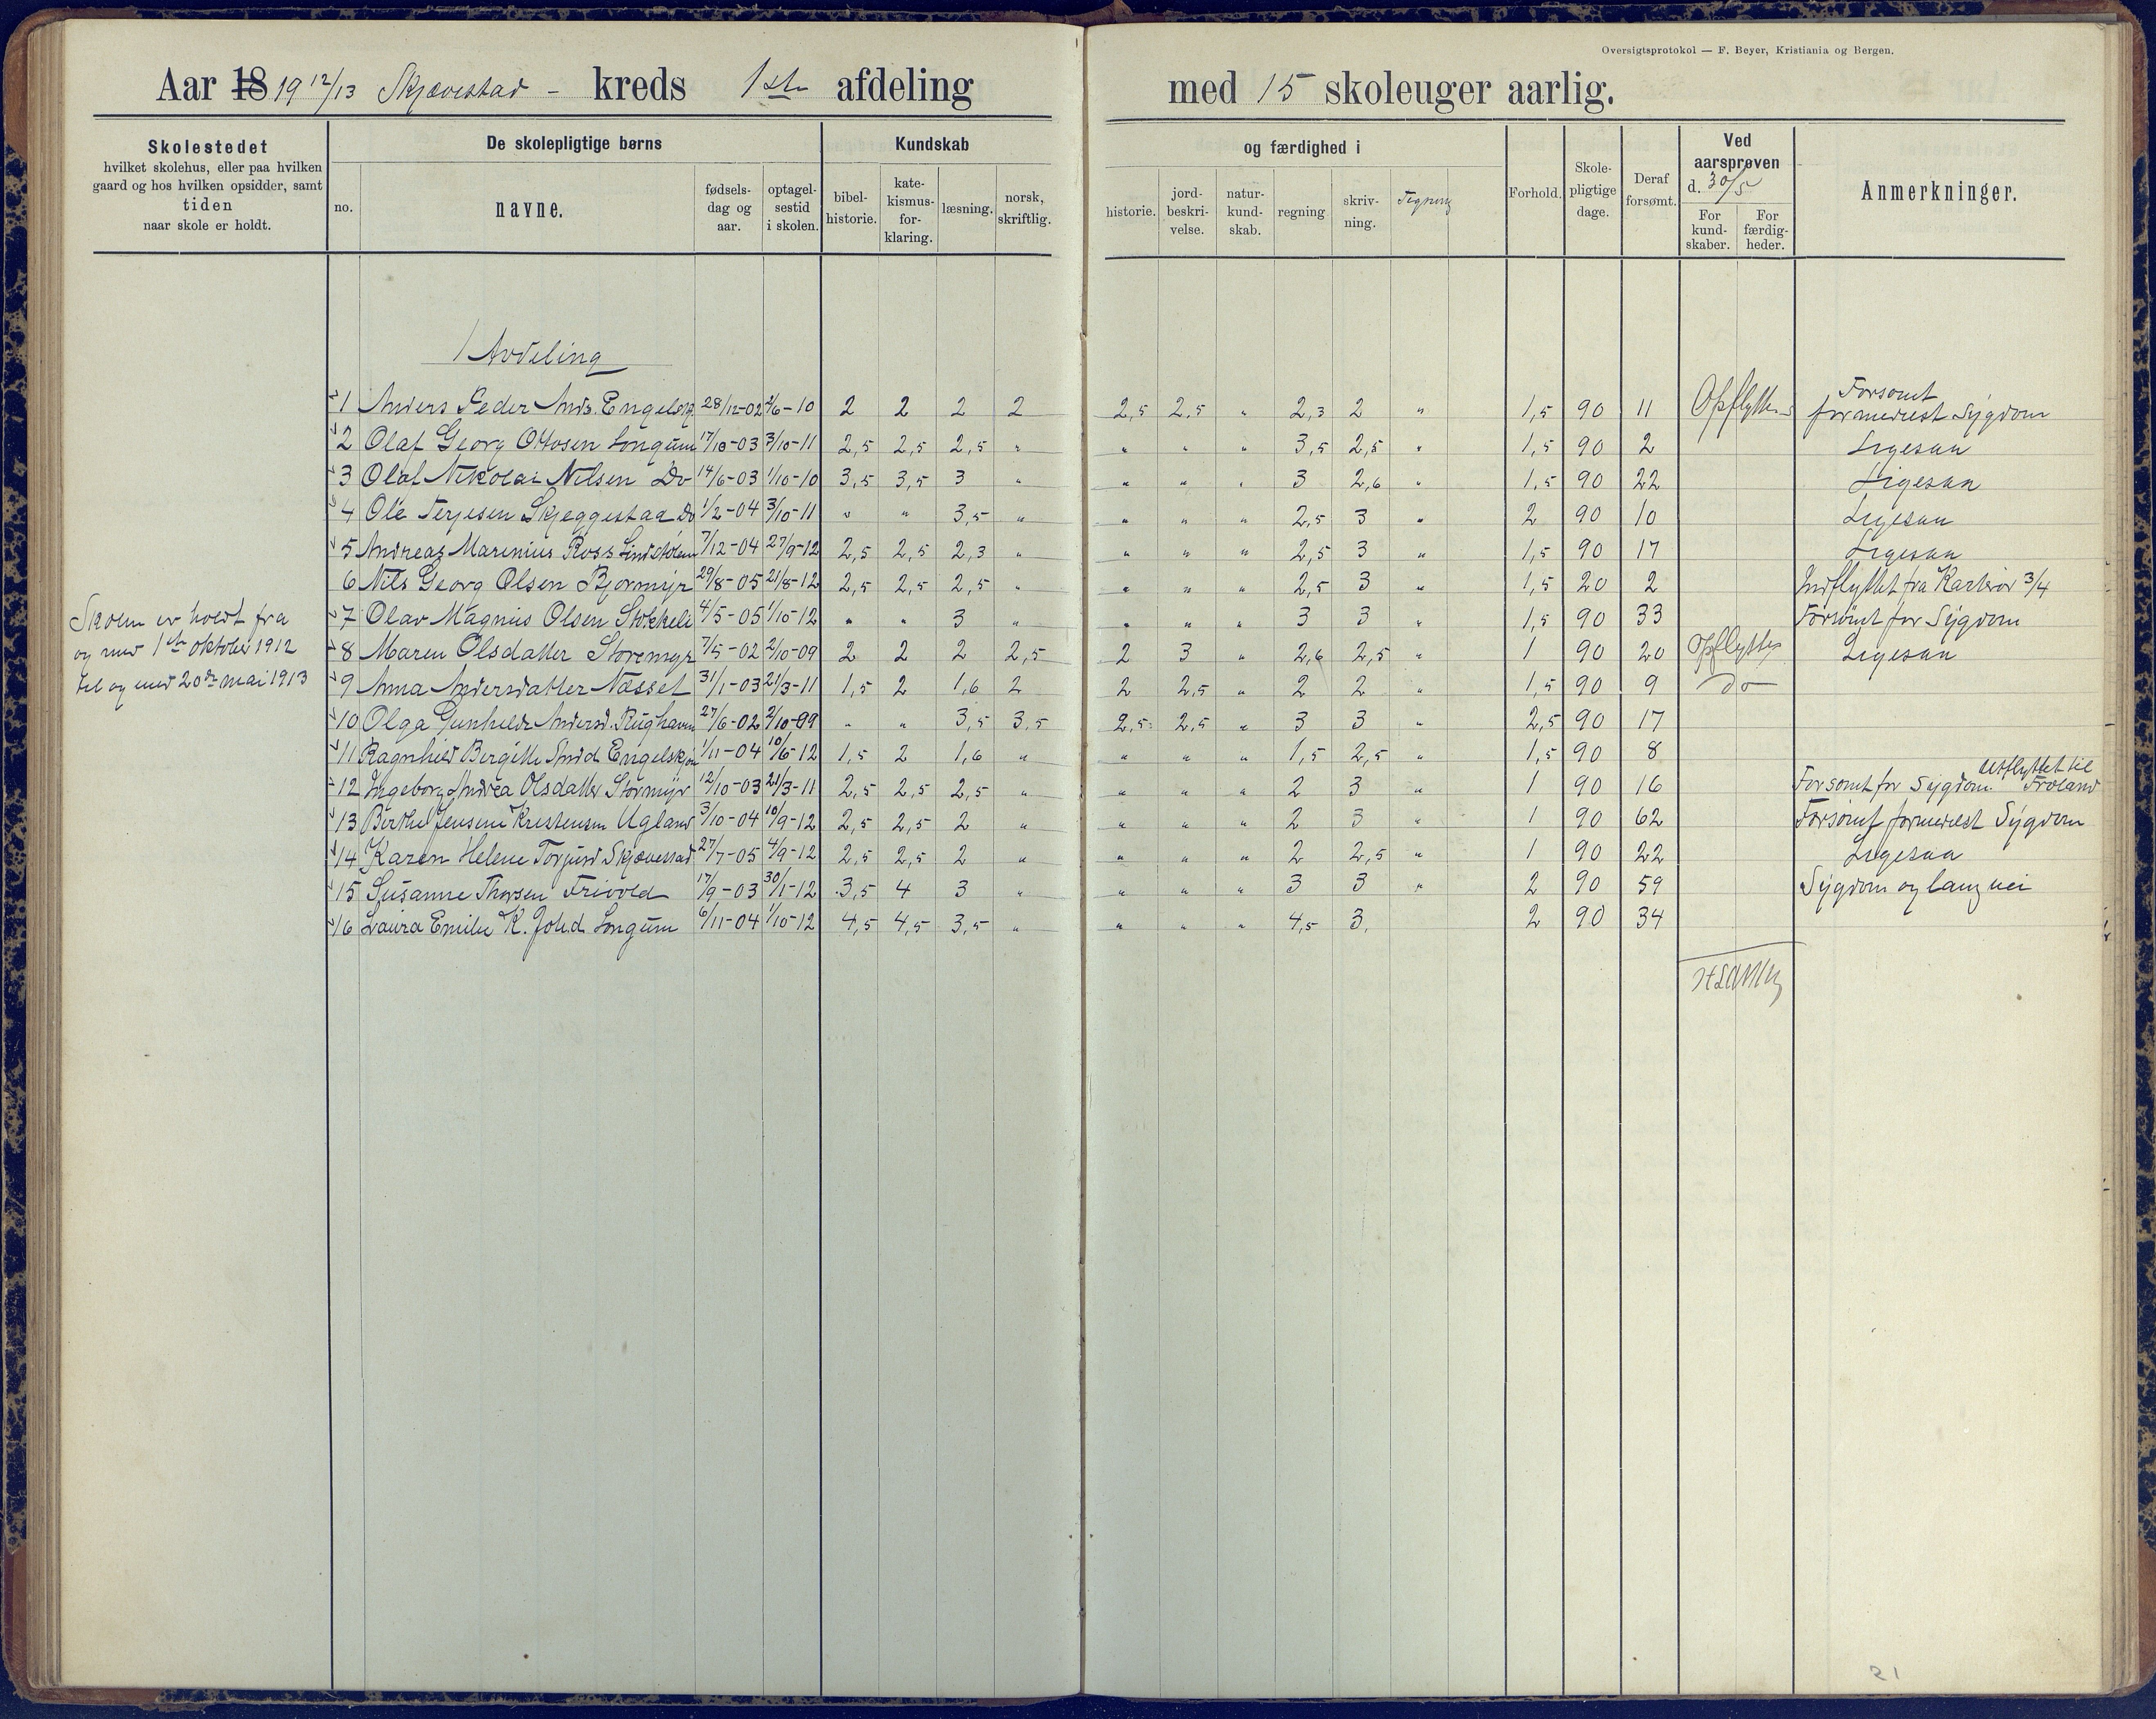 Oversigtsprotokol — F. Beyer, Kristiania og Bergen.
Aar 18 19 12/13 Skjævestad - kreds 1ste afdeling med 15 skoleuger aarlig.
Skolestedet
hvilket skolehus, eller paa hvilken
gaard og hos hvilken opsidder, samt
tiden
naar skole er holdt.
De skolepligtige børns
no.
navne.
fødsels-
dag og
aar.
optagel-
sestid
i skolen.
Kundskab
bibel-
historie.
kate-
kismus-
for-
klaring.
læsning.
norsk,
skriftlig.
og færdighed i
historie.
jord-
beskri-
velse.
natur-
kund-
skab.
regning
skriv-
ning.
Tegning
Forhold.
Skole-
pligtige
dage.
Deraf
forsømt.
Ved
aarsprøven
d. 30/5
For
kund-
skaber.
For
færdig-
heder.
Anmerkninger.
1 Avdeling
Skolen er holdt fra
og med 1ste oktober 1912
til og med 20de mai 1913
Forsømt
1 Anders Peder Ands. Engelskj. 28/12-02 2/6-10 2 2 2 2 2,5 2,5 " 2,3 2 " 1,5 90 11 Opflyttes formedelst Sygdom
2 Olaf Georg Ottosen Longum 17/10-03 3/10-11 2,5 2,5 2,5 " " " " 3,5 2,5 " 1,5 90 2 Ligesaa
3 Olaf Nikolai Nilsen Do 14/6-03 1/10-10 3,5 3,5 3 " " " " 3 2,6 " 1,5 90 22 Ligesaa
4 Ole Terjesen Skjeggestaa Do 1/2-04 3/10-11 " " 3,5 " " " " 2,5 3 " 2 90 10 Ligesaa
5 Andreas Marinius Ross Lindstølen 7/12-04 27/9-12 2,5 2,5 2,3 " " " " 2,5 3 " 1,5 90 17 Ligesaa
6 Nils Georg Olsen Bjormyr 29/8-05 21/8-12 2,5 2,5 2,5 " " " " 2,5 3 " 1,5 20 2 Indflyttet fra 3/4
7 Olav Magnus Olsen Stokkeli 4/5-05 1/10-12 " " 3 " " " " 3 3 " 1,5 90 33 Forsømt for Sygdom
8 Maren Olsdatter Storemyr 7/5-02 2/10-09 2 2 2 2,5 2 3 " 2,6 2,5 " 1 90 20 Opflyttes Ligesaa
9 Anna Andersdatter Næsset 31/1-03 21/3-11 1,5 2 1,6 2 2 2,5 " 2 2 " 1,5 90 9 do
10 Olga Gunhilde Andersd. Rughaven 27/6-02 2/10-09 " " 3,5 3,5 2,5 2,5 " 3 3 " 2,5 90 17
11 Ragnhild Birgitte And.d Engelskjøn 1/11-04 10/6-12 1,5 2 1,6 " " " " 1,5 2,5 " 1,5 90 8
Utflyttet til
12 Ingeborg Andrea Olsdatter Stormyr 12/10-03 21/3-11 2,5 2,5 2,5 " " " " 2 3 " 1 90 16 Forsømt for Sygdom. Froland
13 Birthe Jensine Kristensen Ugland 3/10-04 10/9-12 2,5 2,5 2 " " " " 2 3 " 1 90 62 Forsømt formedelst Sygdom
14 Karen Helene Torjusd Skjævestad 27/7-05 4/9-12 2,5 2,5 2 " " " " 2 2,5 " 1 90 22 Ligesaa
15 Susanne Thorsen Frivold 17/9-03 30/1-12 3,5 4 3 " " " " 3 3 " 2 90 59 Sygdom og lang vei
16 Laura Emilie K. Joh.d Longum 6/11-04 1/10-12 4,5 4,5 3,5 " " " " 4,5 3. 2 90 34
21